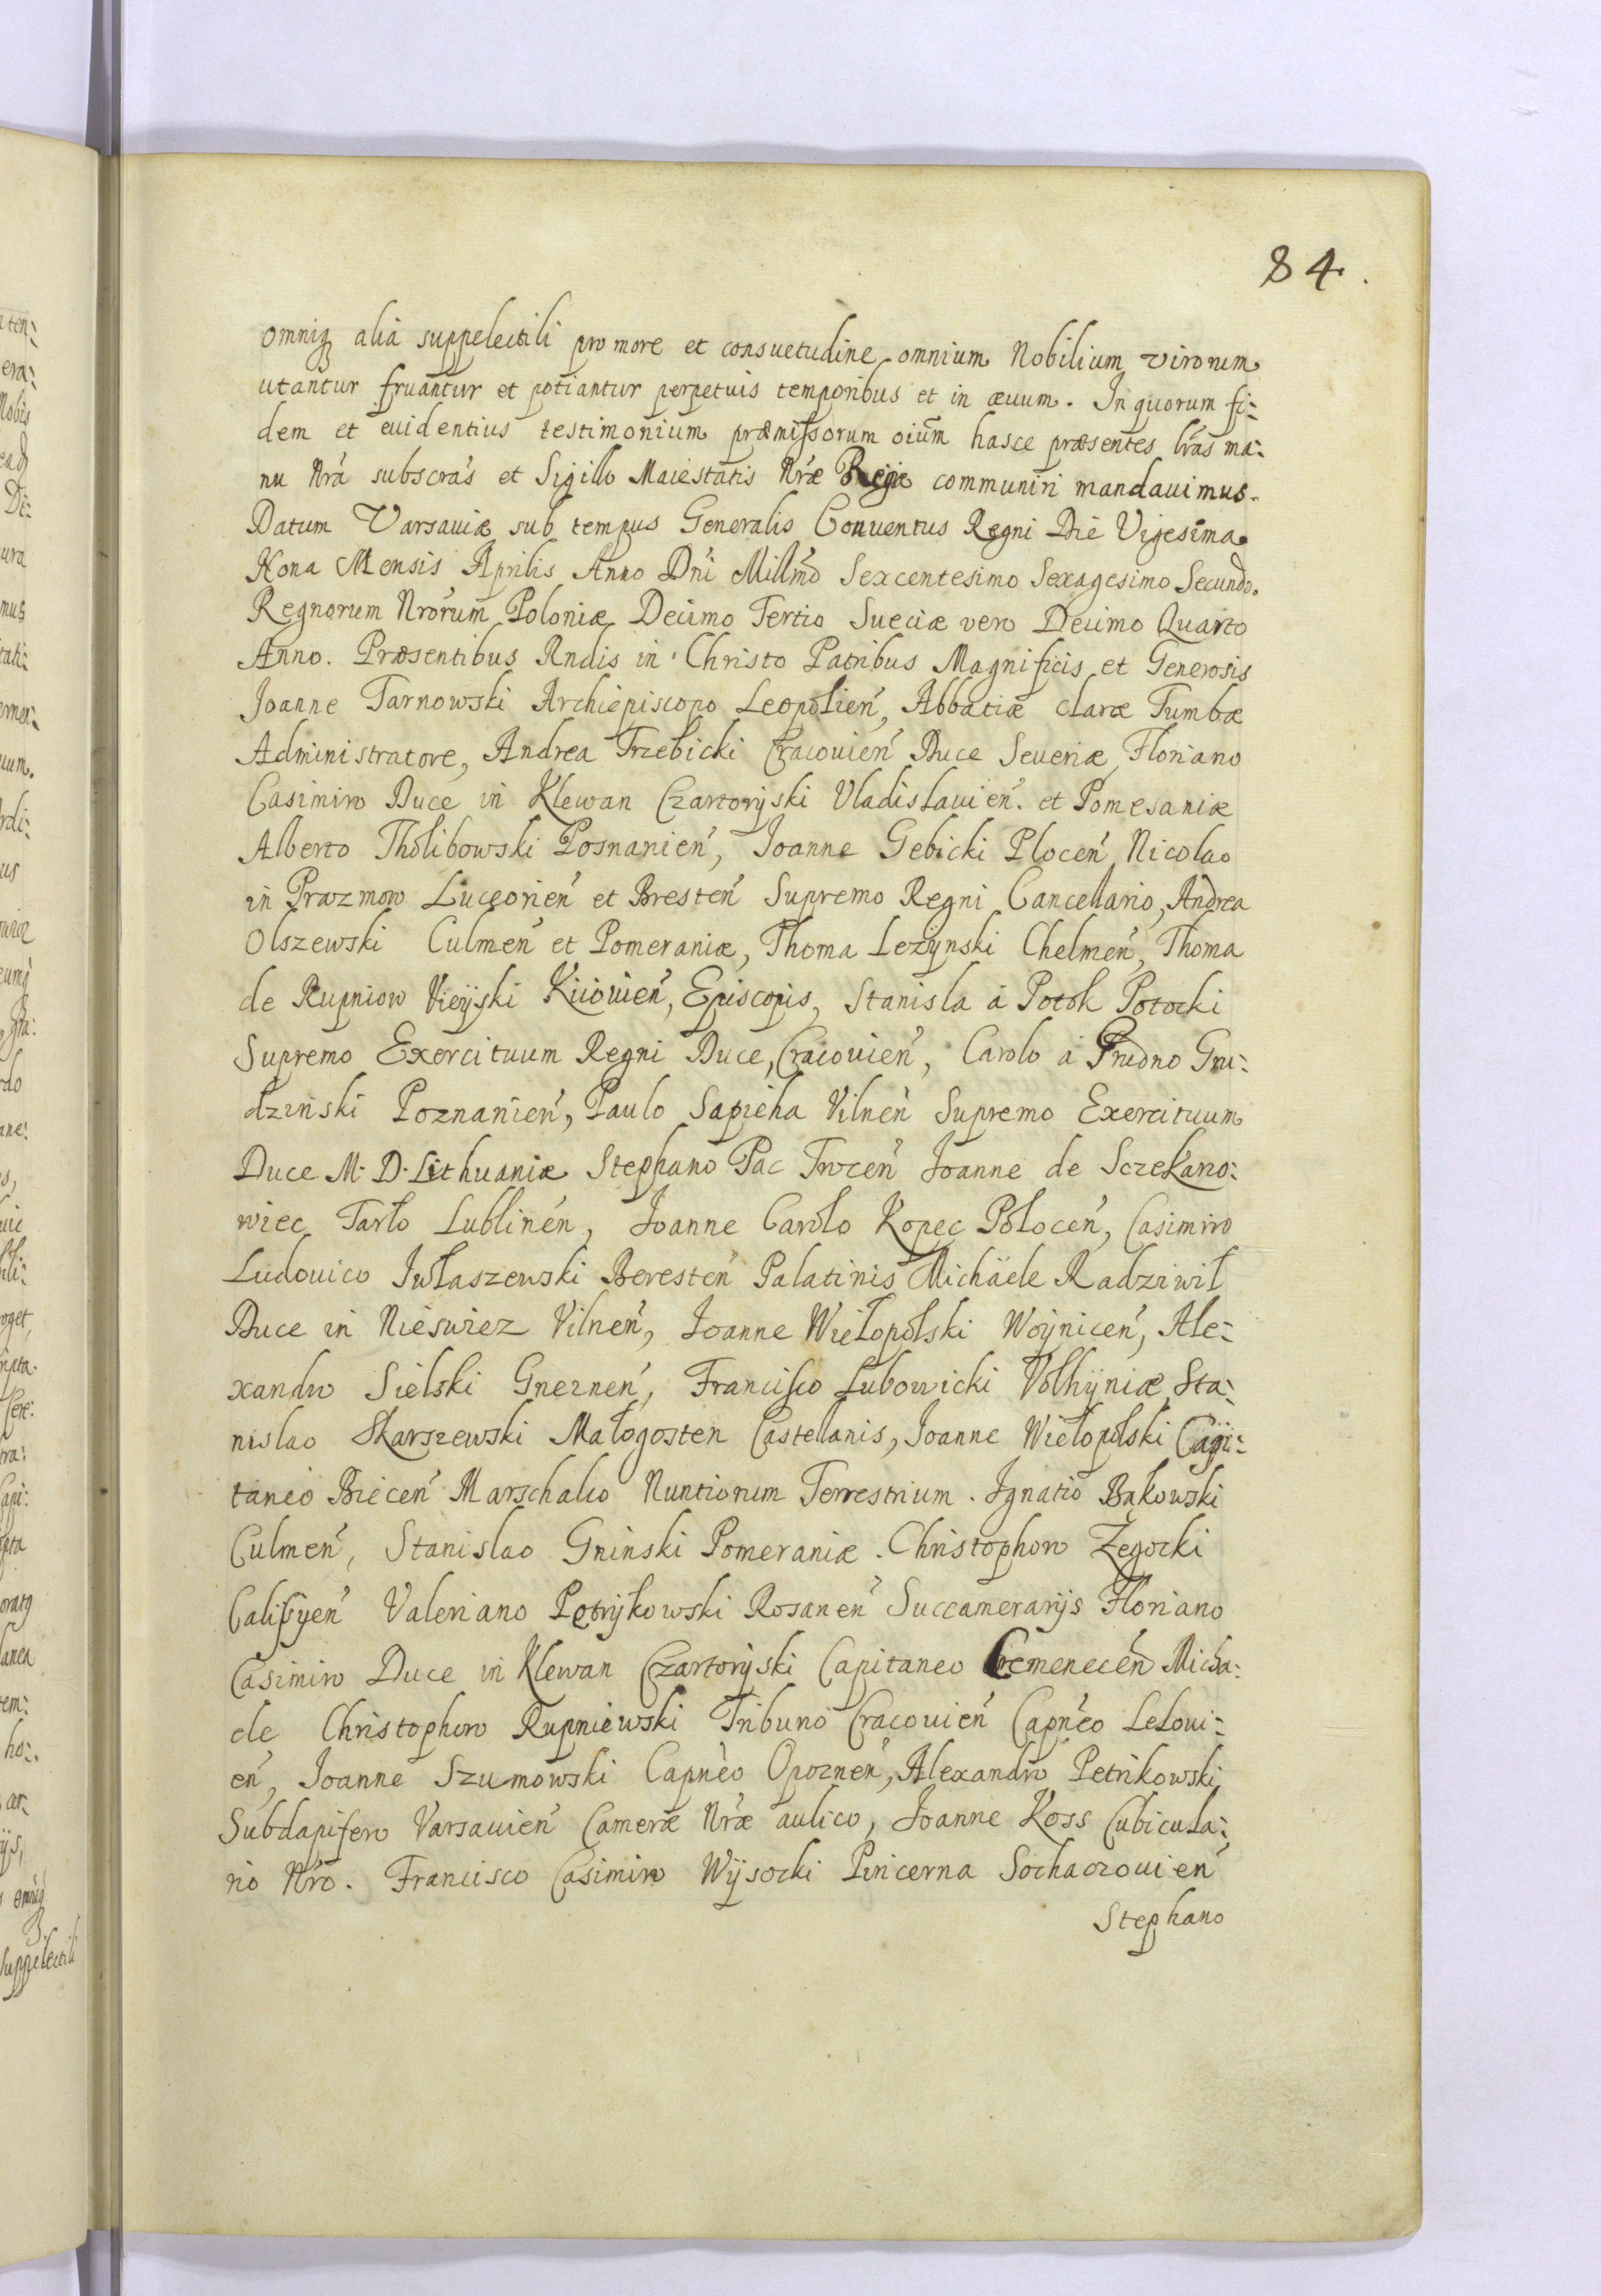 84.
omniq₃ alia suppelectili pro more et consuetudine omnium Nobilium virorum
utantur fruantur et potiantur perpetuis temporibus et in æuum. In quorum fi:
dem et euidentius testimonium præmissorum oium̄ hasce præsentes lr̃as ma:
nu Nrã subscrãs et Sigillo Maiestatis Nræ̃ Regiæ communiri mandauimus.
Datum Varsauiæ sub tempus Generalis Conuentus Regni Die Vigesima
Nona Mensis Aprilis Anno Dñi Millm̃o Sexcentesimo Sexagesimo Secundo.
Regnorum Nrõrum Poloniæ Decimo Tertio Sueciæ vero Decimo Quarto
Anno. Præsentibus Rndis in Christo Patribus Magnificis et Generosis
Joanne Tarnowski Archiepiscopo Leopolień, Abbatiæ claræ Tumbæ
Administratore, Andrea Trzebicki Cracouień Duce Seueriæ, Floriano
Casimiro Duce in Klewan Czartoryjski Vladislauień. et Pomesaniæ
Alberto Tholibowski Posnanień, Joanne GebickiPloceń, Nicolao
in Prazmow Luceorień et Bresteń Supremo Regni Cancellario, Andrea
Olszewski Culmeń et Pomeraniæ, Thoma Lezynski Chelmeń, Thoma
de Rupniow Vieyski Kiiouień, Episcopis, Stanisla à Potok Potocki
Supremo Exercituum Regni Duce, Cracouień, Carolo à Grudno Gru:
dziński Poznanień, Paulo Sapieha Vilneń Supremo Exercituum
Duce M. D. Lithuaniæ Stephano Pac Troceń Joanne de Sczekarzo:
wiec Tarło Lublinén, Joanne Carolo Kopec Połoceń, Casimiro
Ludouico Jwłaszewski Beresteń Palatinis Michäele Radziwił
Duce in Nieswiez Vilneń, Joanne Wielopolski Woyniceń, Ale:
xandro Sielski Gnezneń, Francisco Lubowicki Volhyniæ, Sta:
nislao Skarszewski Małogosten Castellanis, Joanne Wielopolski Capi:
taneo Bieceń Marschalco Nuntiorum Terrestrium. Ignatio Bąkowski
Culmeń, Stanislao Gniński Pomeraniæ. Christophoro Żegocki
Calissyeń Valeriano Petrykowski Rosaneń Succamerarijs Floriano
Casimiro Duce in Klewan Czartoryjski Capitaneo Cremeneceń Micha:
ele Christophoro Rupniewski Tribuno Cracouień Capnẽo Leloui:
eń, Joanne Szumowski Capnẽo Opozneń, Alexandro Petrikowski
Subdapifero Varsauień Cameræ Nræ̃ aulico, Joanne Koss Cubicula:
rio Nrõ. Francisco Casimiro Wysocki Pincerna Sochaczouień
Stephano